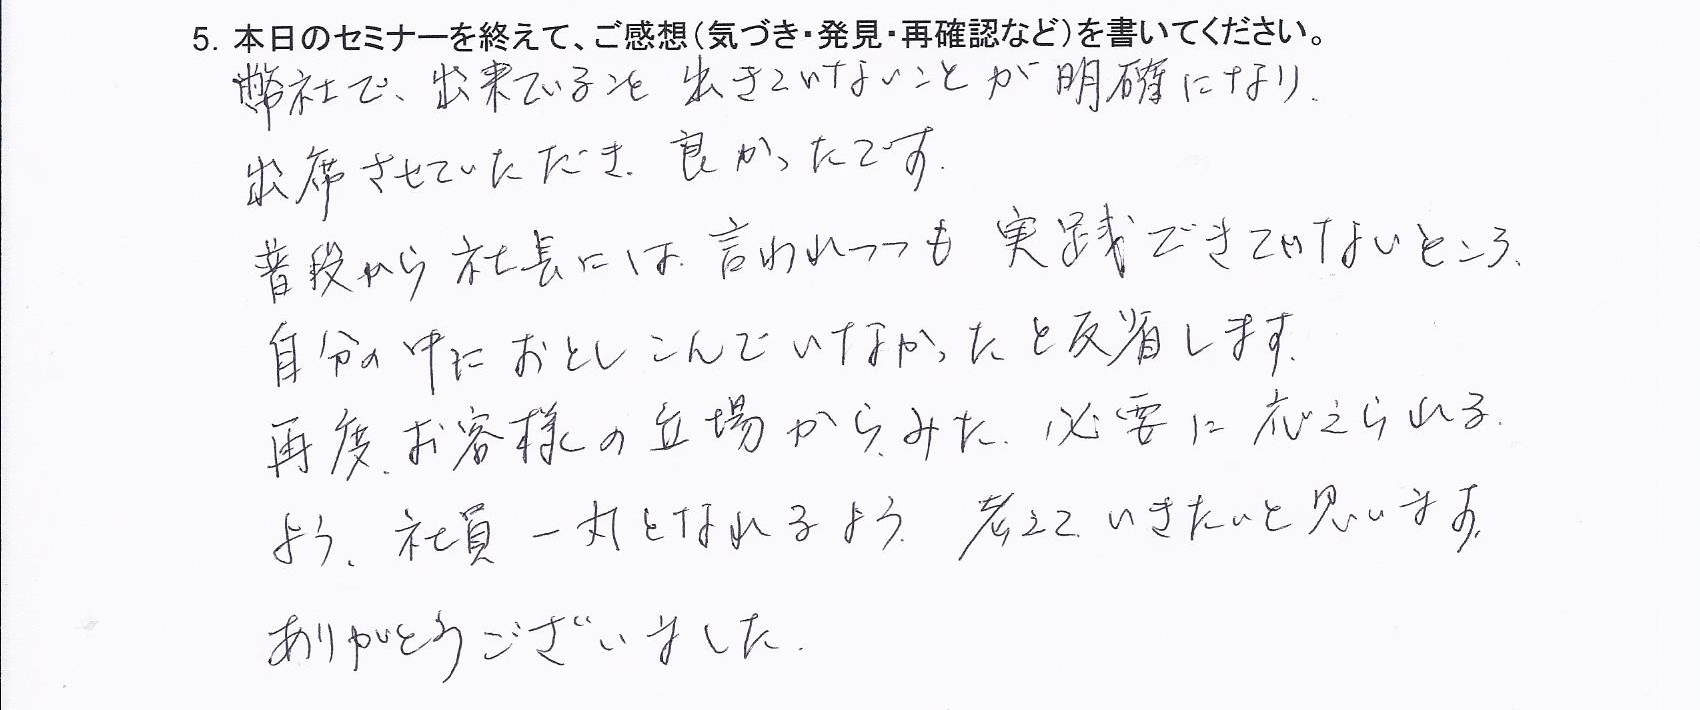 5. 本日のセミナーを終えて、ご感想(気づき・発見・再確認など)を書いてください。
弊社で、出来ていることを 出きていないことが 明確になり、
出席させていただき、良かったです。
普段から 社長には、言われつつも 実践できていないところ、
自分の中に おとしこんでいなかったと反省します。
再度、お客様の立場から、みた、必要に 応えられる、
よう、社員一丸となれるよう、考えて、いきたいと思います。
ありがとうございました。